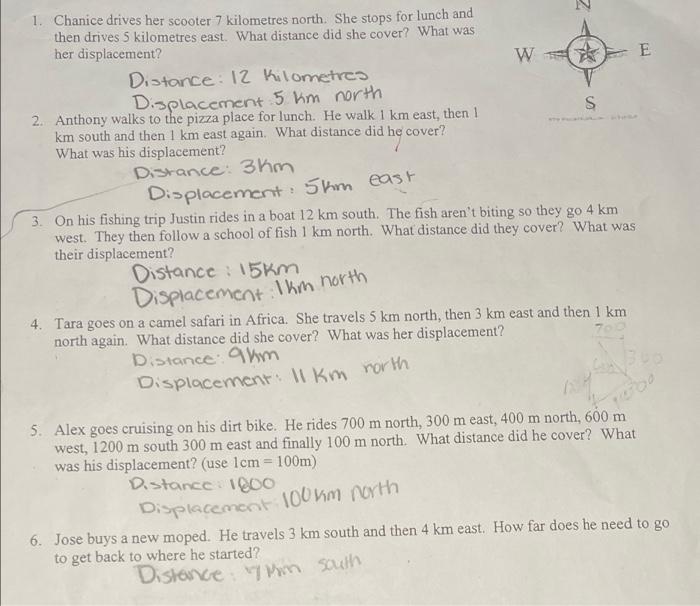 N
1. Chanice drives her scooter 7 kilometres north. She stops for lunch and
then drives 5 kilometres east. What distance did she cover? What was
her displacement?
W E
S
Distance: 12 Kilometres
Displacement 5 km north
2. Anthony walks to the pizza place for lunch. He walk 1 km east, then 1
km south and then 1 km east again. What distance did he cover?
What was his displacement?
Distance: 3km
Displacement: 5km east
3. On his fishing trip Justin rides in a boat 12 km south. The fish aren't biting so they go 4 km
west. They then follow a school of fish 1 km north. What distance did they cover? What was
their displacement?
Distance: 15km
Displacement: 1km north
4. Tara goes on a camel safari in Africa. She travels 5 km north, then 3 km east and then 1 km
north again. What distance did she cover? What was her displacement?
700
Distance: 9km
300
Displacement: 11 Km north
5. Alex goes cruising on his dirt bike. He rides 700 m north, 300 m east, 400 m north, 600 m
west, 1200 m south 300 m east and finally 100 m north. What distance did he cover? What
was his displacement? (use 1cm = 100m)
Distance: 1800
Displacement: 100 km north
6. Jose buys a new moped. He travels 3 km south and then 4 km east. How far does he need to go
to get back to where he started?
Distance: 7 km south